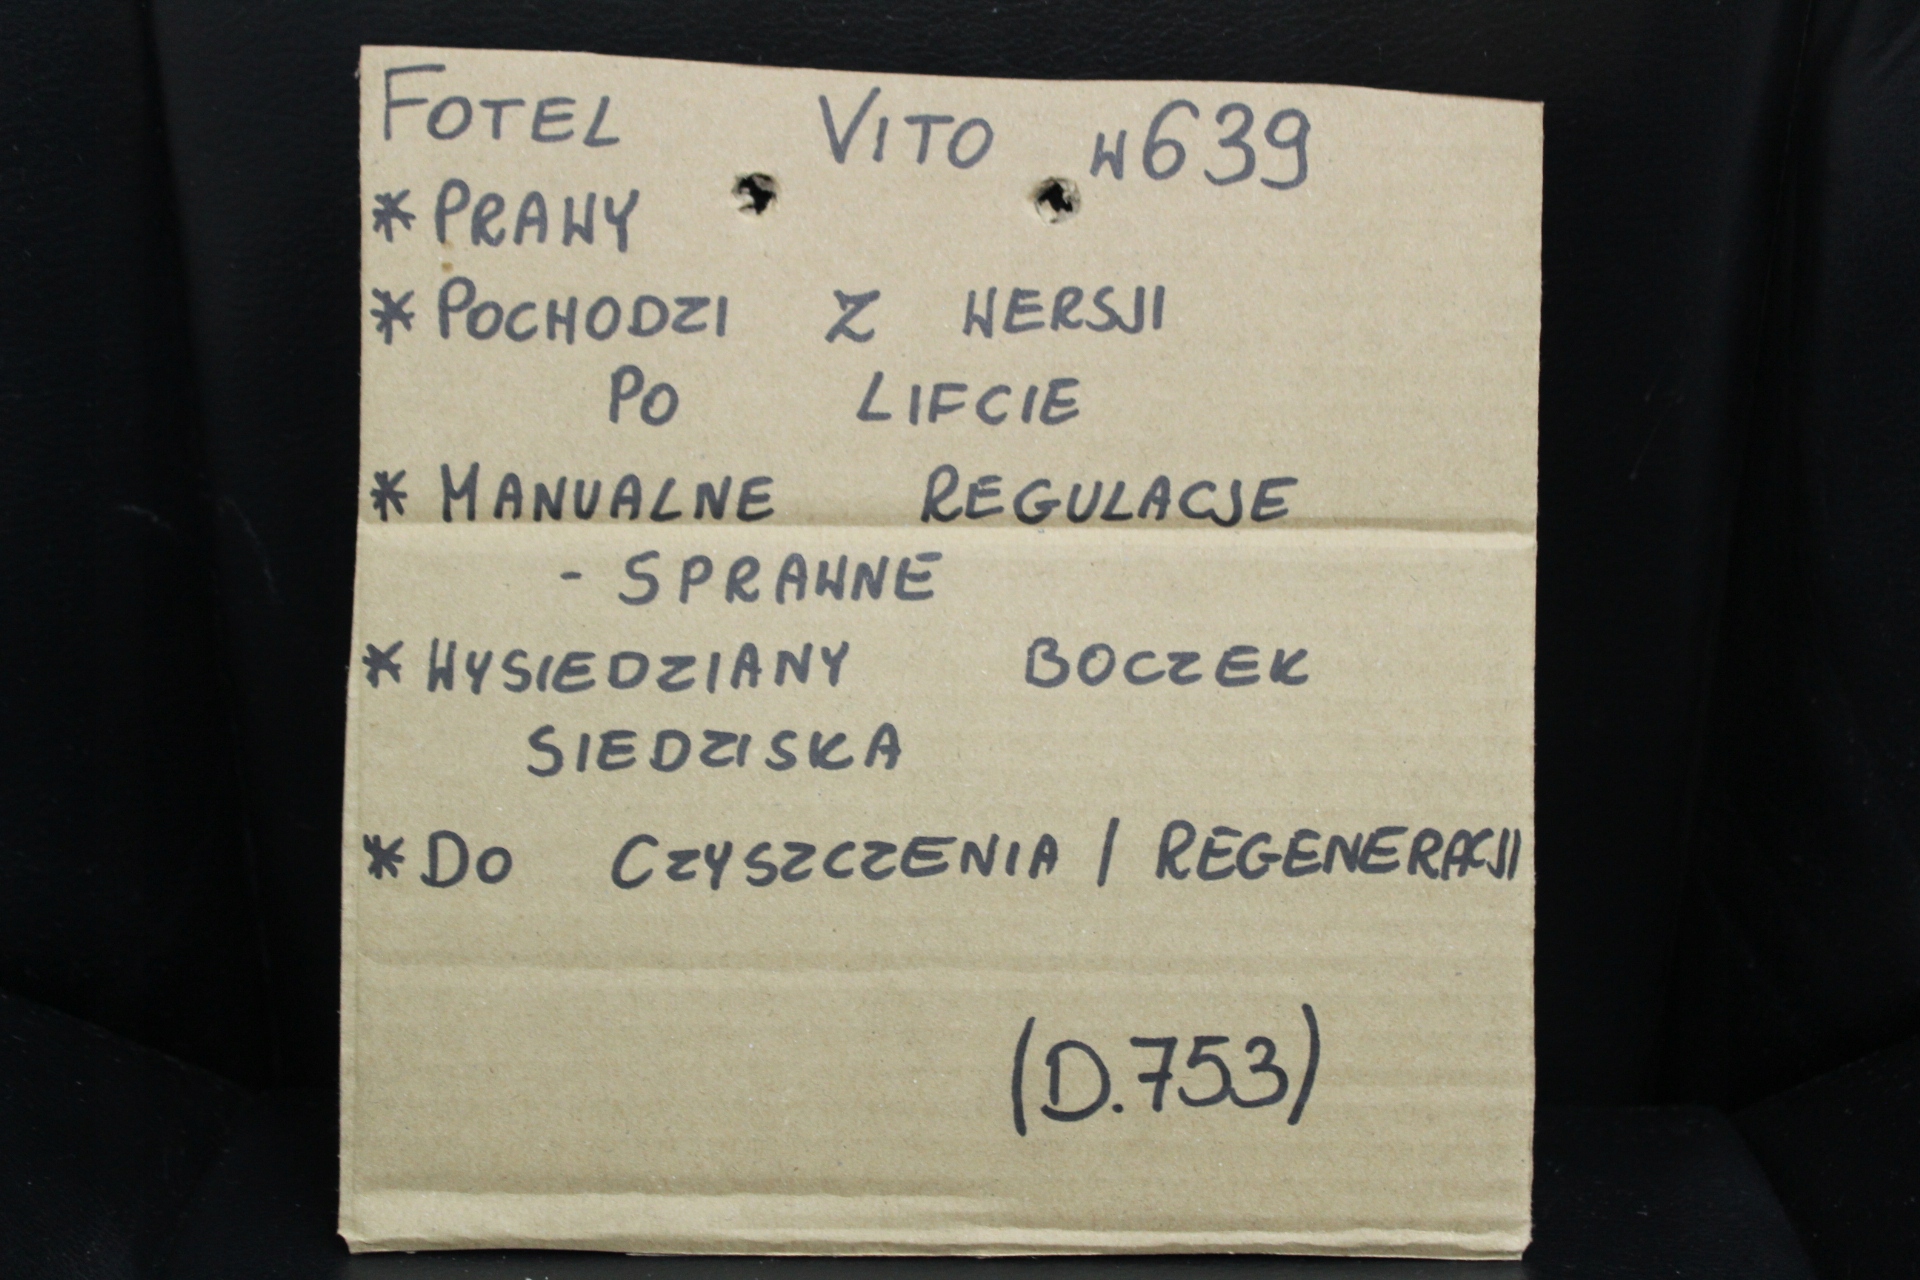 FOTEL VITO W639
* PRAWY
* POCHODZI Z WERSJI
PO LIFCIE
* MANUALNE REGULACJE
- SPRAWNE
* WYSIEDZIANY BOCZEK
SIEDZISKA
* DO CZYSZCZENIA / REGENERACJI
(D.753)